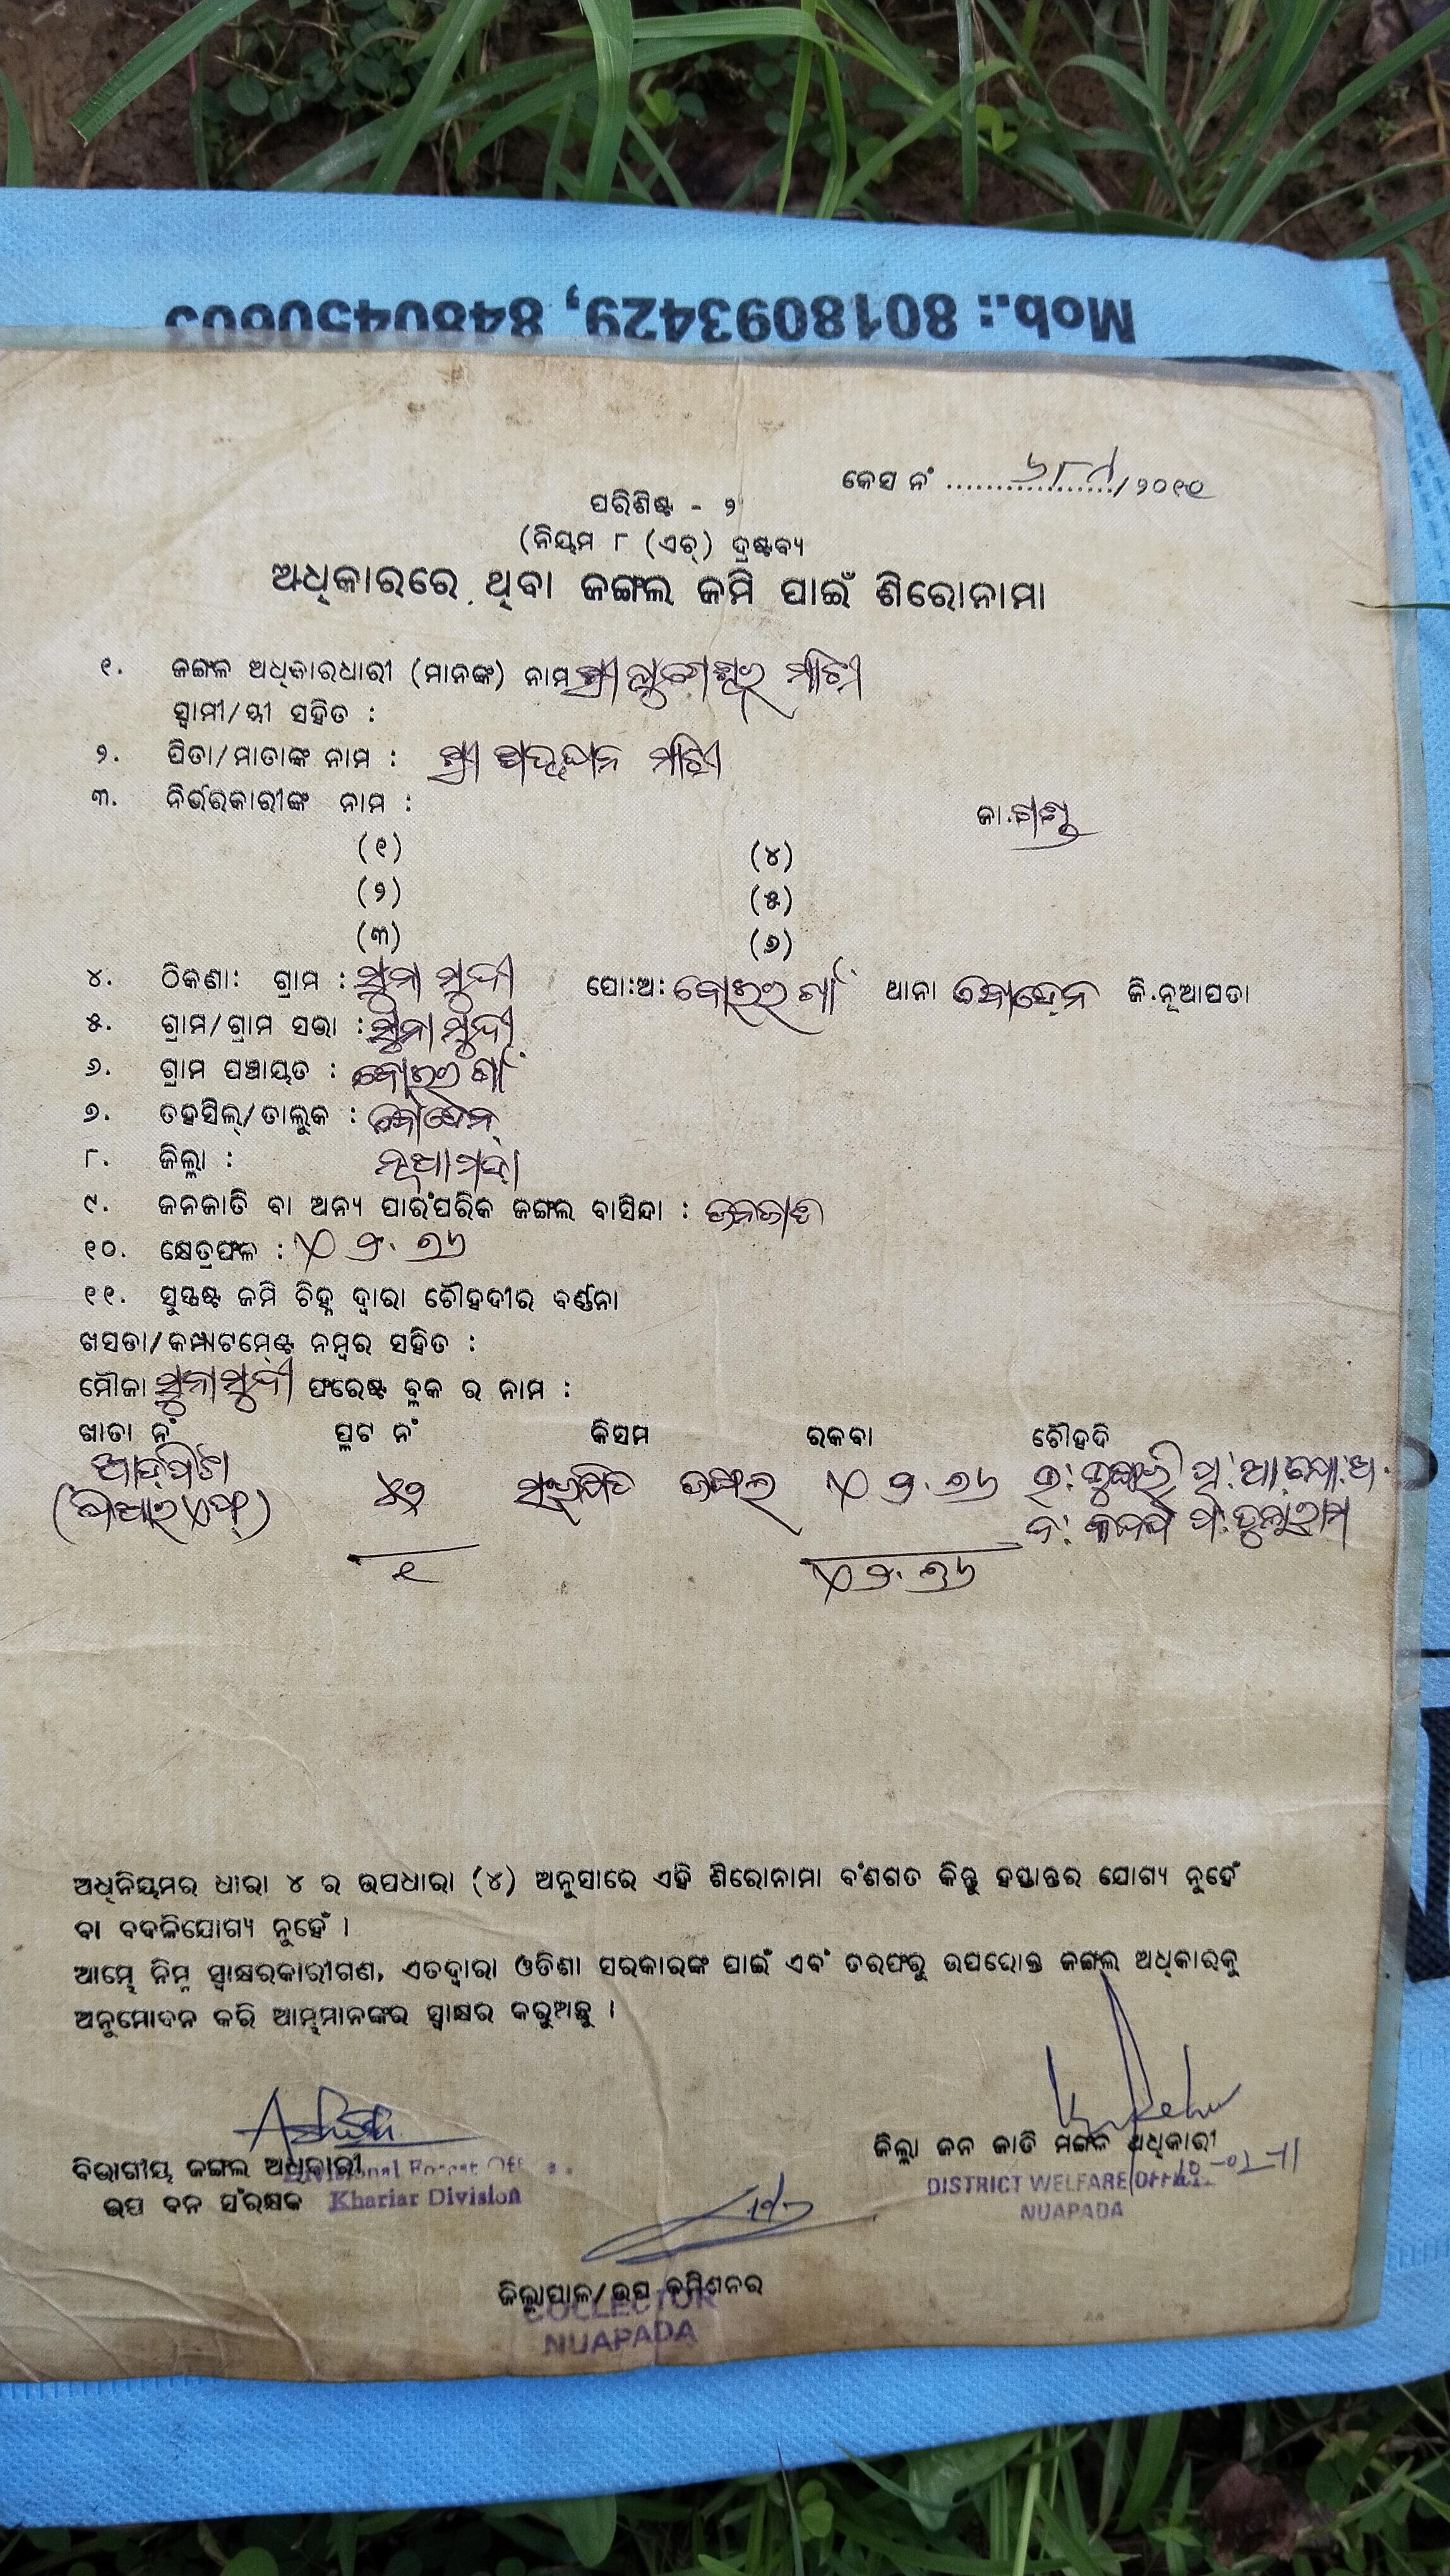 Mob.: 8018093429, 8480450603
କେସ ନଂ ................/୨୦୧୧
ପରିଶିଷ୍ଟ - ୨
(ନିୟମ ୮ (ଏଚ୍) ଦ୍ରଷ୍ଟବ୍ୟ
ଅଧିକାରରେ ଥିବା ଜଙ୍ଗଲ ଜମି ପାଇଁ ଶିରୋନାମା
୧. ଜଙ୍ଗଳ ଅଧିକାରଧାରୀ (ମାନଙ୍କ) ନାମ ଶ୍ରୀ ମାଝି
ସ୍ୱାମୀ/ସ୍ତ୍ରୀ ସହିତ :
୨. ପିତା/ମାତାଙ୍କ ନାମ : ଶ୍ରୀ ମାଝି
୩. ନିର୍ଭରକାରୀଙ୍କ ନାମ :
ଜା.ଗଣ୍ଡ
(୧) (୪)
(୨) (୫)
(୩) (୬)
୪. ଠିକଣା: ଗ୍ରାମ : ସୁନା ମୁନ୍ଦୀ ପୋ:ଅ: ବୋଇରଗାଁ ଥାନା ବୋଡେନ ଜି.ନୂଆପଡା
୫. ଗ୍ରାମ/ଗ୍ରାମ ସଭା : ସୁନା ମୁନ୍ଦୀ
୬. ଗ୍ରାମ ପଞ୍ଚାୟତ : ବୋଇରଗାଁ
୭. ତହସିଲ୍/ତାଲୁକ : ବୋଡେନ୍
୮. ଜିଲ୍ଲା : ନୂଆପଡ଼ା
୯. ଜନଜାତି ବା ଅନ୍ୟ ପାରଂପରିକ ଜଙ୍ଗଲ ବାସିନ୍ଦା : ଜନଜାତି
୧୦. କ୍ଷେତ୍ରଫଳ : ଏ ୨.୭୬
୧୧. ସୁସ୍ପଷ୍ଟ ଜମି ଚିହ୍ନ ଦ୍ୱାରା ଚୌହଦୀର ବର୍ଣ୍ଣନା
ଖସଡା/କମ୍ପାଟମେଣ୍ଟ ନମ୍ବର ସହିତ :
ମୌଜା ସୁନାମୁନ୍ଦୀ ଫରେଷ୍ଟ ବ୍ଲକ ର ନାମ :
ଖାତା ନଂ ପ୍ଳଟ ନଂ କିସମ ରକବା ଚୌହଦି
୪୨ ସଂରକ୍ଷିତ ଜଙ୍ଗଲ ଏ ୨.୭୬
୧ ଏ ୨.୭୬
ଅଧିନିୟମର ଧାରା ୪ ର ଉପଧାରା (୪) ଅନୁସାରେ ଏହି ଶିରୋନାମା ବଂଶଗତ କିନ୍ତୁ ହସ୍ତାନ୍ତର ଯୋଗ୍ୟ ନୁହେଁ
ବା ବଦଳିଯୋଗ୍ୟ ନୁହେଁ ।
ଆମ୍ଭେ ନିମ୍ନ ସ୍ୱାକ୍ଷରକାରୀଗଣ, ଏତଦ୍ୱାରା ଓଡିଶା ସରକାରଙ୍କ ପାଇଁ ଏବଂ ତରଫରୁ ଉପରୋକ୍ତ ଜଙ୍ଗଲ ଅଧିକାରକୁ
ଅନୁମୋଦନ କରି ଆମ୍ଭମାନଙ୍କର ସ୍ୱାକ୍ଷର କରୁଅଛୁ ।
ଜିଲ୍ଲା ଜନ ଜାତି ମଙ୍ଗଳ ଅଧିକାରୀ
DISTRICT WELFARE OFFICER
NUAPADA
ବିଭାଗୀୟ ଜଙ୍ଗଲ ଅଧିକାରୀ Divisional Forest
ଉପ ବନ ସଂରକ୍ଷକ Khariar Division
ଜିଲ୍ଲାପାଳ/ଉପ କମିଶନର
COLLECTOR
NUAPADA